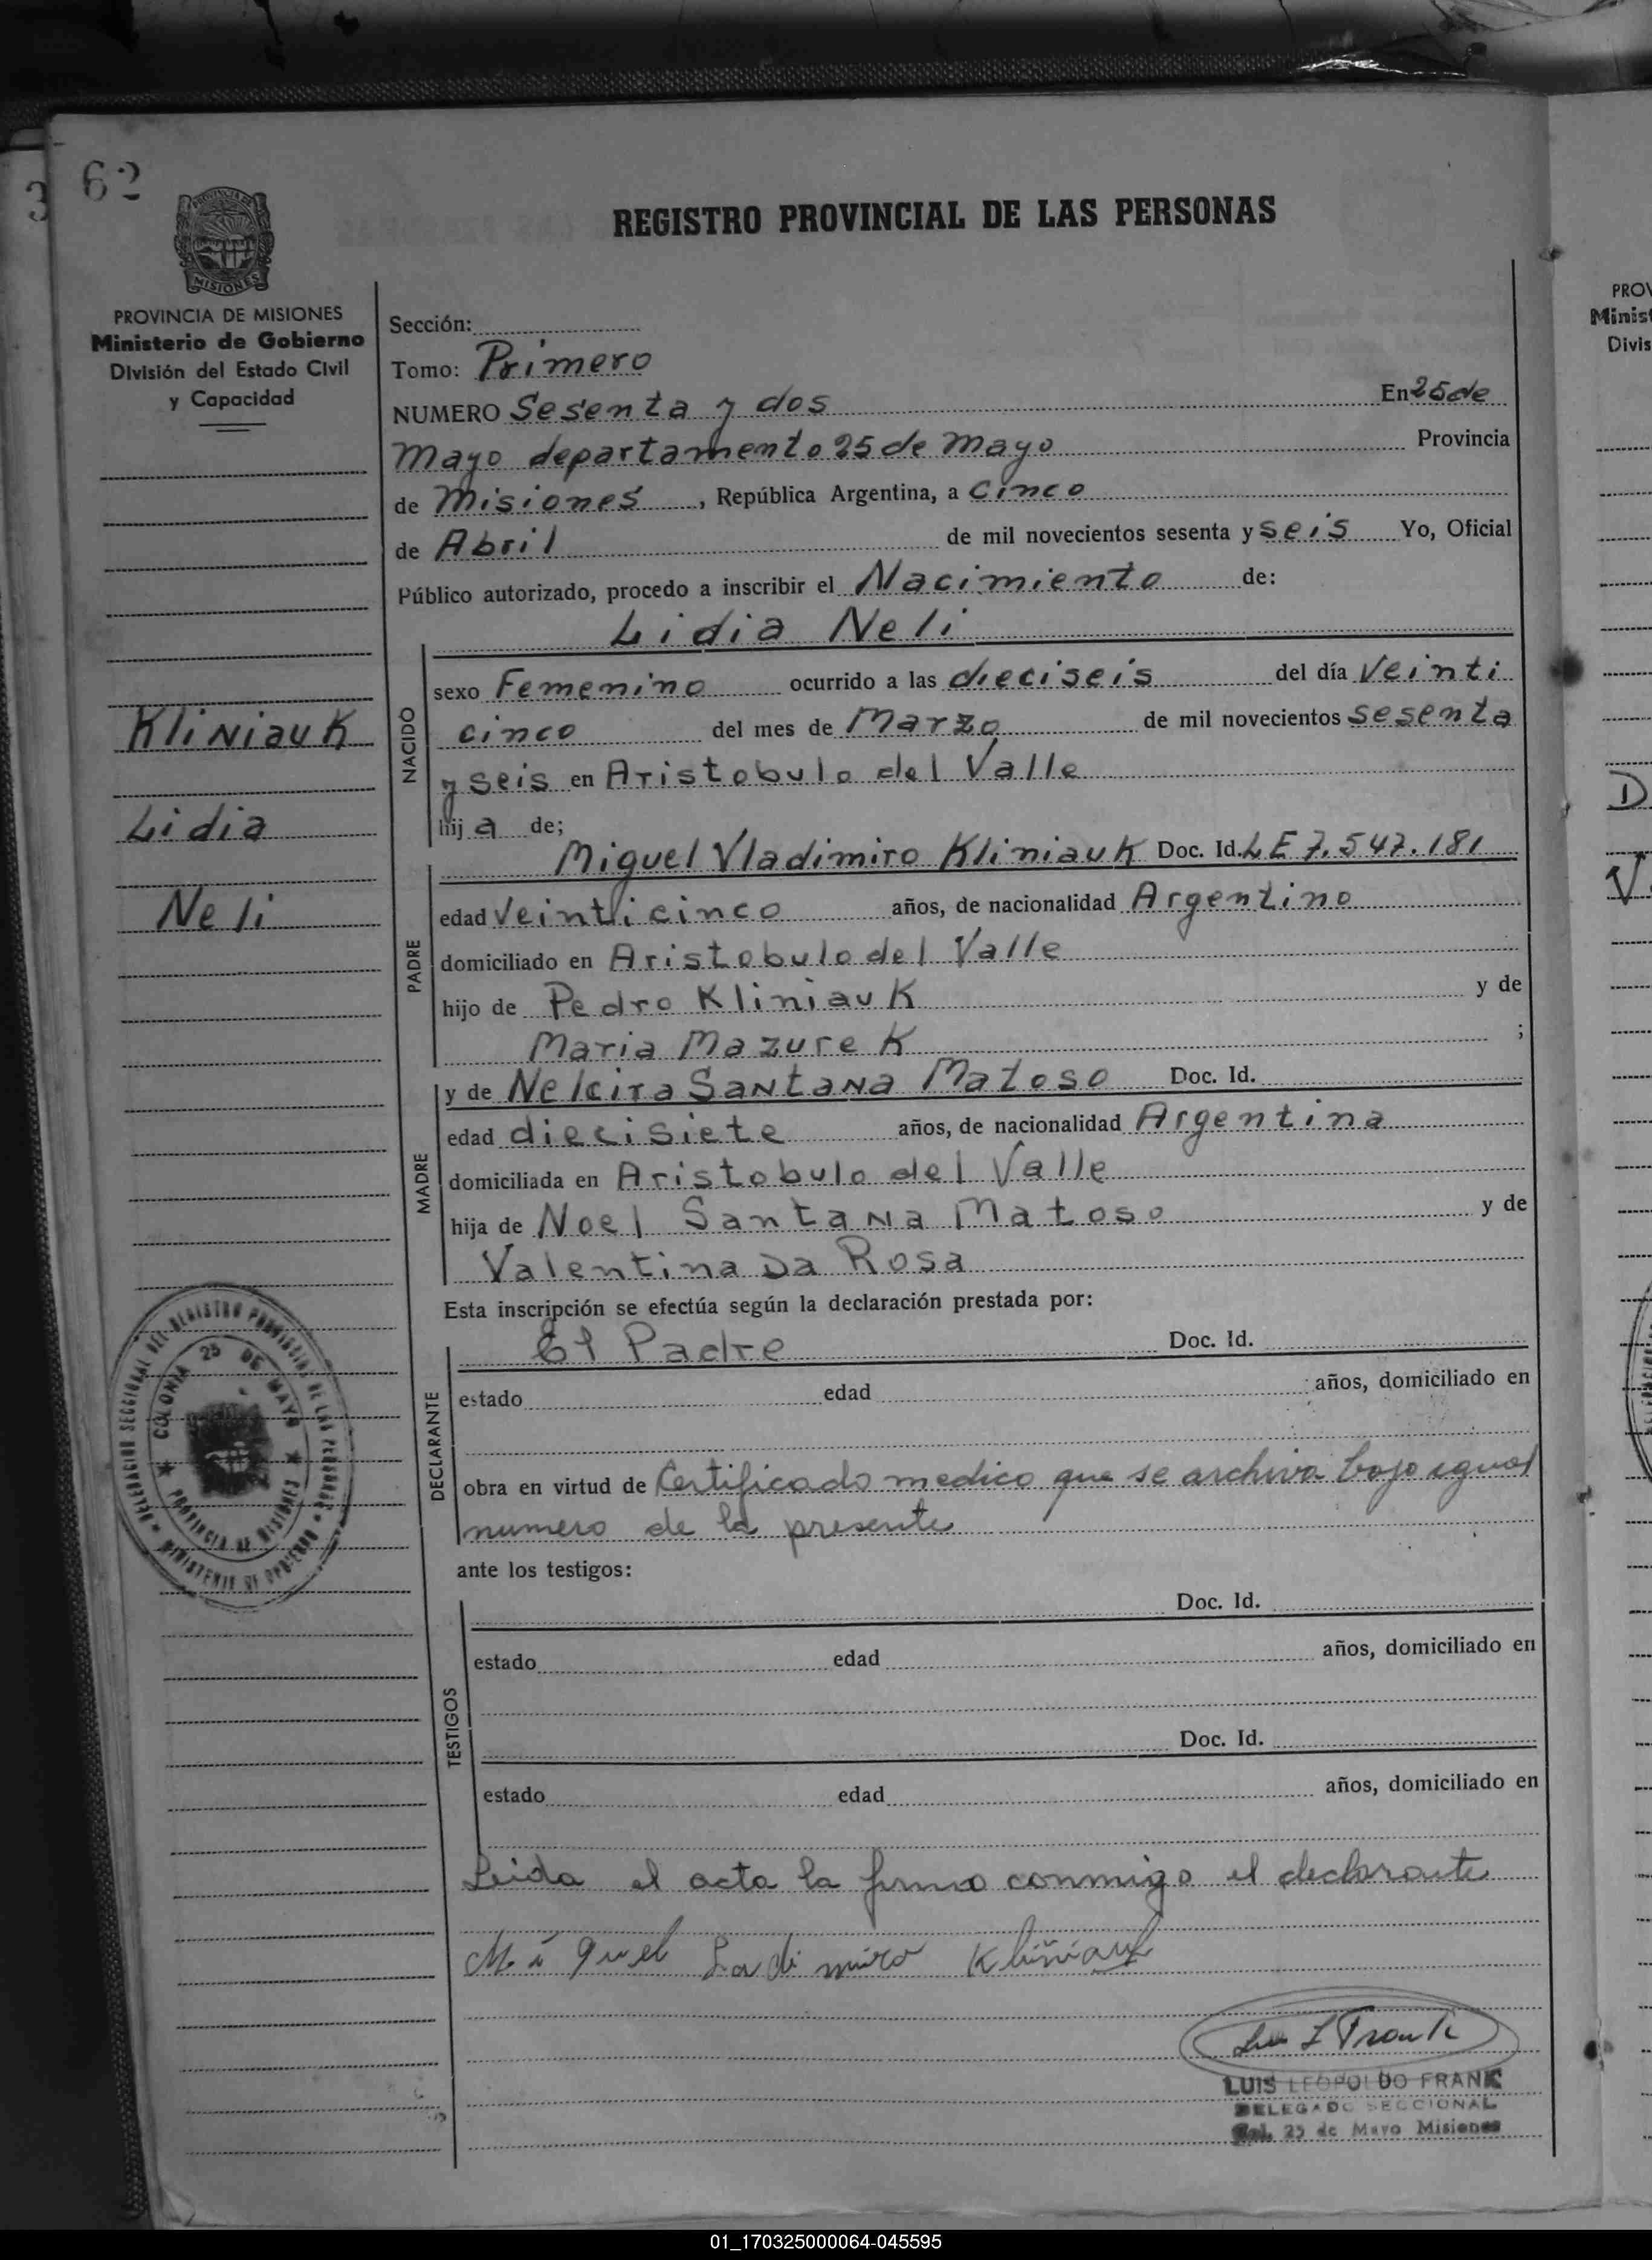 62
3
MISIONES
REGISTRO PROVINCIAL DE LAS PERSONAS
PROVINCIA DE MISIONES
Ministerio de Gobierno
División del Estado Civil
y Capacidad
Kliniauk
Lidia
Neli
Sección:
Tomo: Primero
NUMERO Sesenta y dos En 25 de
Mayo departamento 25 de Mayo Provincia
de Misiones, República Argentina, a Cinco
de Abril de mil novecientos sesenta y seis Yo, Oficial
Público autorizado, procedo a inscribir el Nacimiento de:
Lidia Neli
NACIDO
sexo Femenino ocurrido a las dieciseis del día Veinti
cinco del mes de Marzo de mil novecientos sesenta
y seis en Aristobulo del Valle
hija de;
PADRE
Miguel Vladimiro Kliniauk Doc. Id. LE 7.547.181
edad Veinticinco años, de nacionalidad Argentino
domiciliado en Aristobulo del Valle
hijo de Pedro Kliniauk y de
Maria Mazurek ;
MADRE
y de Nelcira Santana Matoso Doc. Id.
edad diecisiete años, de nacionalidad Argentina
domiciliada en Aristobulo del Valle
hija de Noel Santana Matoso y de
Valentina Da Rosa
Esta inscripción se efectúa según la declaración prestada por:
DECLARANTE
El Padre Doc. Id.
estado edad años, domiciliado en
obra en virtud de Certificado medico que se archiva bajo igual
numero de la presente
ante los testigos:
TESTIGOS
Doc. Id.
estado edad años, domiciliado en
Doc. Id.
estado edad años, domiciliado en
Leida el acta la firma conmigo el declarante
Miguel Ladimiro Kliñiauk
Luis L Frank
LUIS LEOPOLDO FRANK
DELEGADO SECCIONAL
Col. 25 de Mayo Misiones
DELEGACION SECCIONAL DEL REGISTRO PROVINCIAL DE LAS PERSONAS
MINISTERIO DE GOBIERNO
COLONIA 25 DE MAYO
PROVINCIA DE MISIONES
PROV
Minist
Divis
D
V
01_170325000064-045595